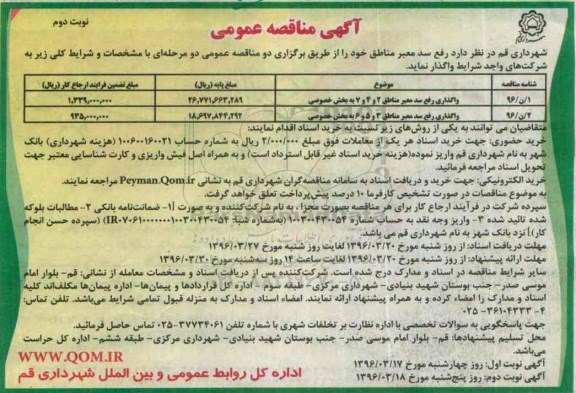 نوبت دوم
آگهی مناقصه عمومی
شهرداری قم در نظر دارد رفع سد معبر مناطق خود را از طریق برگزاری دو مناقصه عمومی دو مرحله‌ای با مشخصات و شرایط کلی زیر به
شرکت‌های واجد شرایط واگذار نماید.
شناسه مناقصه موضوع مبلغ پایه (ریال) مبلغ تضمین فرایند ارجاع کار (ریال)
۹۶/ن/۱ واگذاری رفع سد معبر مناطق ۲ و ۴ و ۷ به بخش خصوصی ۲۶,۷۷۱,۶۶۳,۲۸۹ ۱,۳۳۹,۰۰۰,۰۰۰
۹۶/ن/۲ واگذاری رفع سد معبر مناطق ۳ و ۵ و ۶ به بخش خصوصی ۱۸,۶۹۷,۸۴۴,۲۹۲ ۹۳۵,۰۰۰,۰۰۰
متقاضیان می توانند به یکی از روش‌های زیر نسبت به خرید اسناد اقدام نمایند:
خرید حضوری: جهت خرید اسناد هر یک از معاملات فوق مبلغ ۲/۰۰۰/۰۰۰ ریال به شماره حساب ۱۰۰۶۰۰۱۶۰۰۲۱ (هزینه شهرداری) بانک
شهر به نام شهرداری قم واریز نموده(هزینه خرید اسناد غیر قابل استرداد است) و به همراه اصل فیش واریزی و کارت شناسایی معتبر جهت
تحویل اسناد مراجعه فرمائید.
خرید الکترونیکی: جهت خرید و دریافت اسناد به سامانه مناقصه‌گران شهرداری قم به نشانی Peyman.Qom.ir مراجعه نمایند.
به موضوع مناقصات در صورت تشخیص کارفرما ۱۰ درصد پیش‌پرداخت تعلق خواهد گرفت.
سپرده شرکت در فرآیند ارجاع کار برای هر مناقصه بصورت مجزا، به نام شرکت‌کننده و به صورت [۱- ضمانت‌نامه بانکی ۲- مطالبات بلوکه
شده تائید شده ۳- واریز وجه نقد به حساب شماره ۱۰۰۳۰۰۴۳۰۰۵۴ (به‌شماره شبا: IR۰۷۰۶۱۰۰۰۰۰۰۰۱۰۰۳۰۰۴۳۰۰۵۴) (سپرده حسن انجام
کار)] نزد بانک شهر به نام شهرداری قم می باشد.
مهلت دریافت اسناد: از روز شنبه مورخ ۱۳۹۶/۰۳/۲۰ لغایت روز شنبه مورخ ۱۳۹۶/۰۳/۲۷
مهلت ارائه پیشنهاد: از روز شنبه مورخ ۱۳۹۶/۰۳/۲۰ لغایت ساعت ۱۴ روز سه‌شنبه مورخ ۱۳۹۶/۰۳/۳۰
سایر شرایط مناقصه در اسناد و مدارک درج شده است. شرکت‌کننده پس از دریافت اسناد و مشخصات معامله از نشانی: قم- بلوار امام
موسی صدر- جنب بوستان شهید بنیادی- شهرداری مرکزی- طبقه سوم - اداره کل قراردادها و پیمان‌ها- اداره پیمان‌ها مکلف‌اند کلیه
اسناد و مدارک را امضاء کرده و به همراه پیشنهاد ارائه نمایند. امضاء اسناد و مدارک به منزله قبول تمامی شرایط می‌باشد. تلفن تماس:
۴-۳۶۱۰۴۳۳۳-۰۲۵
جهت پاسخگویی به سوالات تخصصی با اداره نظارت بر تخلفات شهری با شماره تلفن ۳۷۷۳۴۰۶۱-۰۲۵ تماس حاصل فرمائید.
محل تسلیم پیشنهادها: قم- بلوار امام موسی صدر- جنب بوستان شهید بنیادی- شهرداری مرکزی- طبقه ششم- اداره کل حراست
می‌باشد.
آگهی نوبت اول: روز چهارشنبه مورخ ۱۳۹۶/۰۳/۱۷
آگهی نوبت دوم: روز پنج‌شنبه مورخ ۱۳۹۶/۰۳/۱۸
WWW.QOM.IR
اداره کل روابط عمومی و بین الملل شهرداری قم